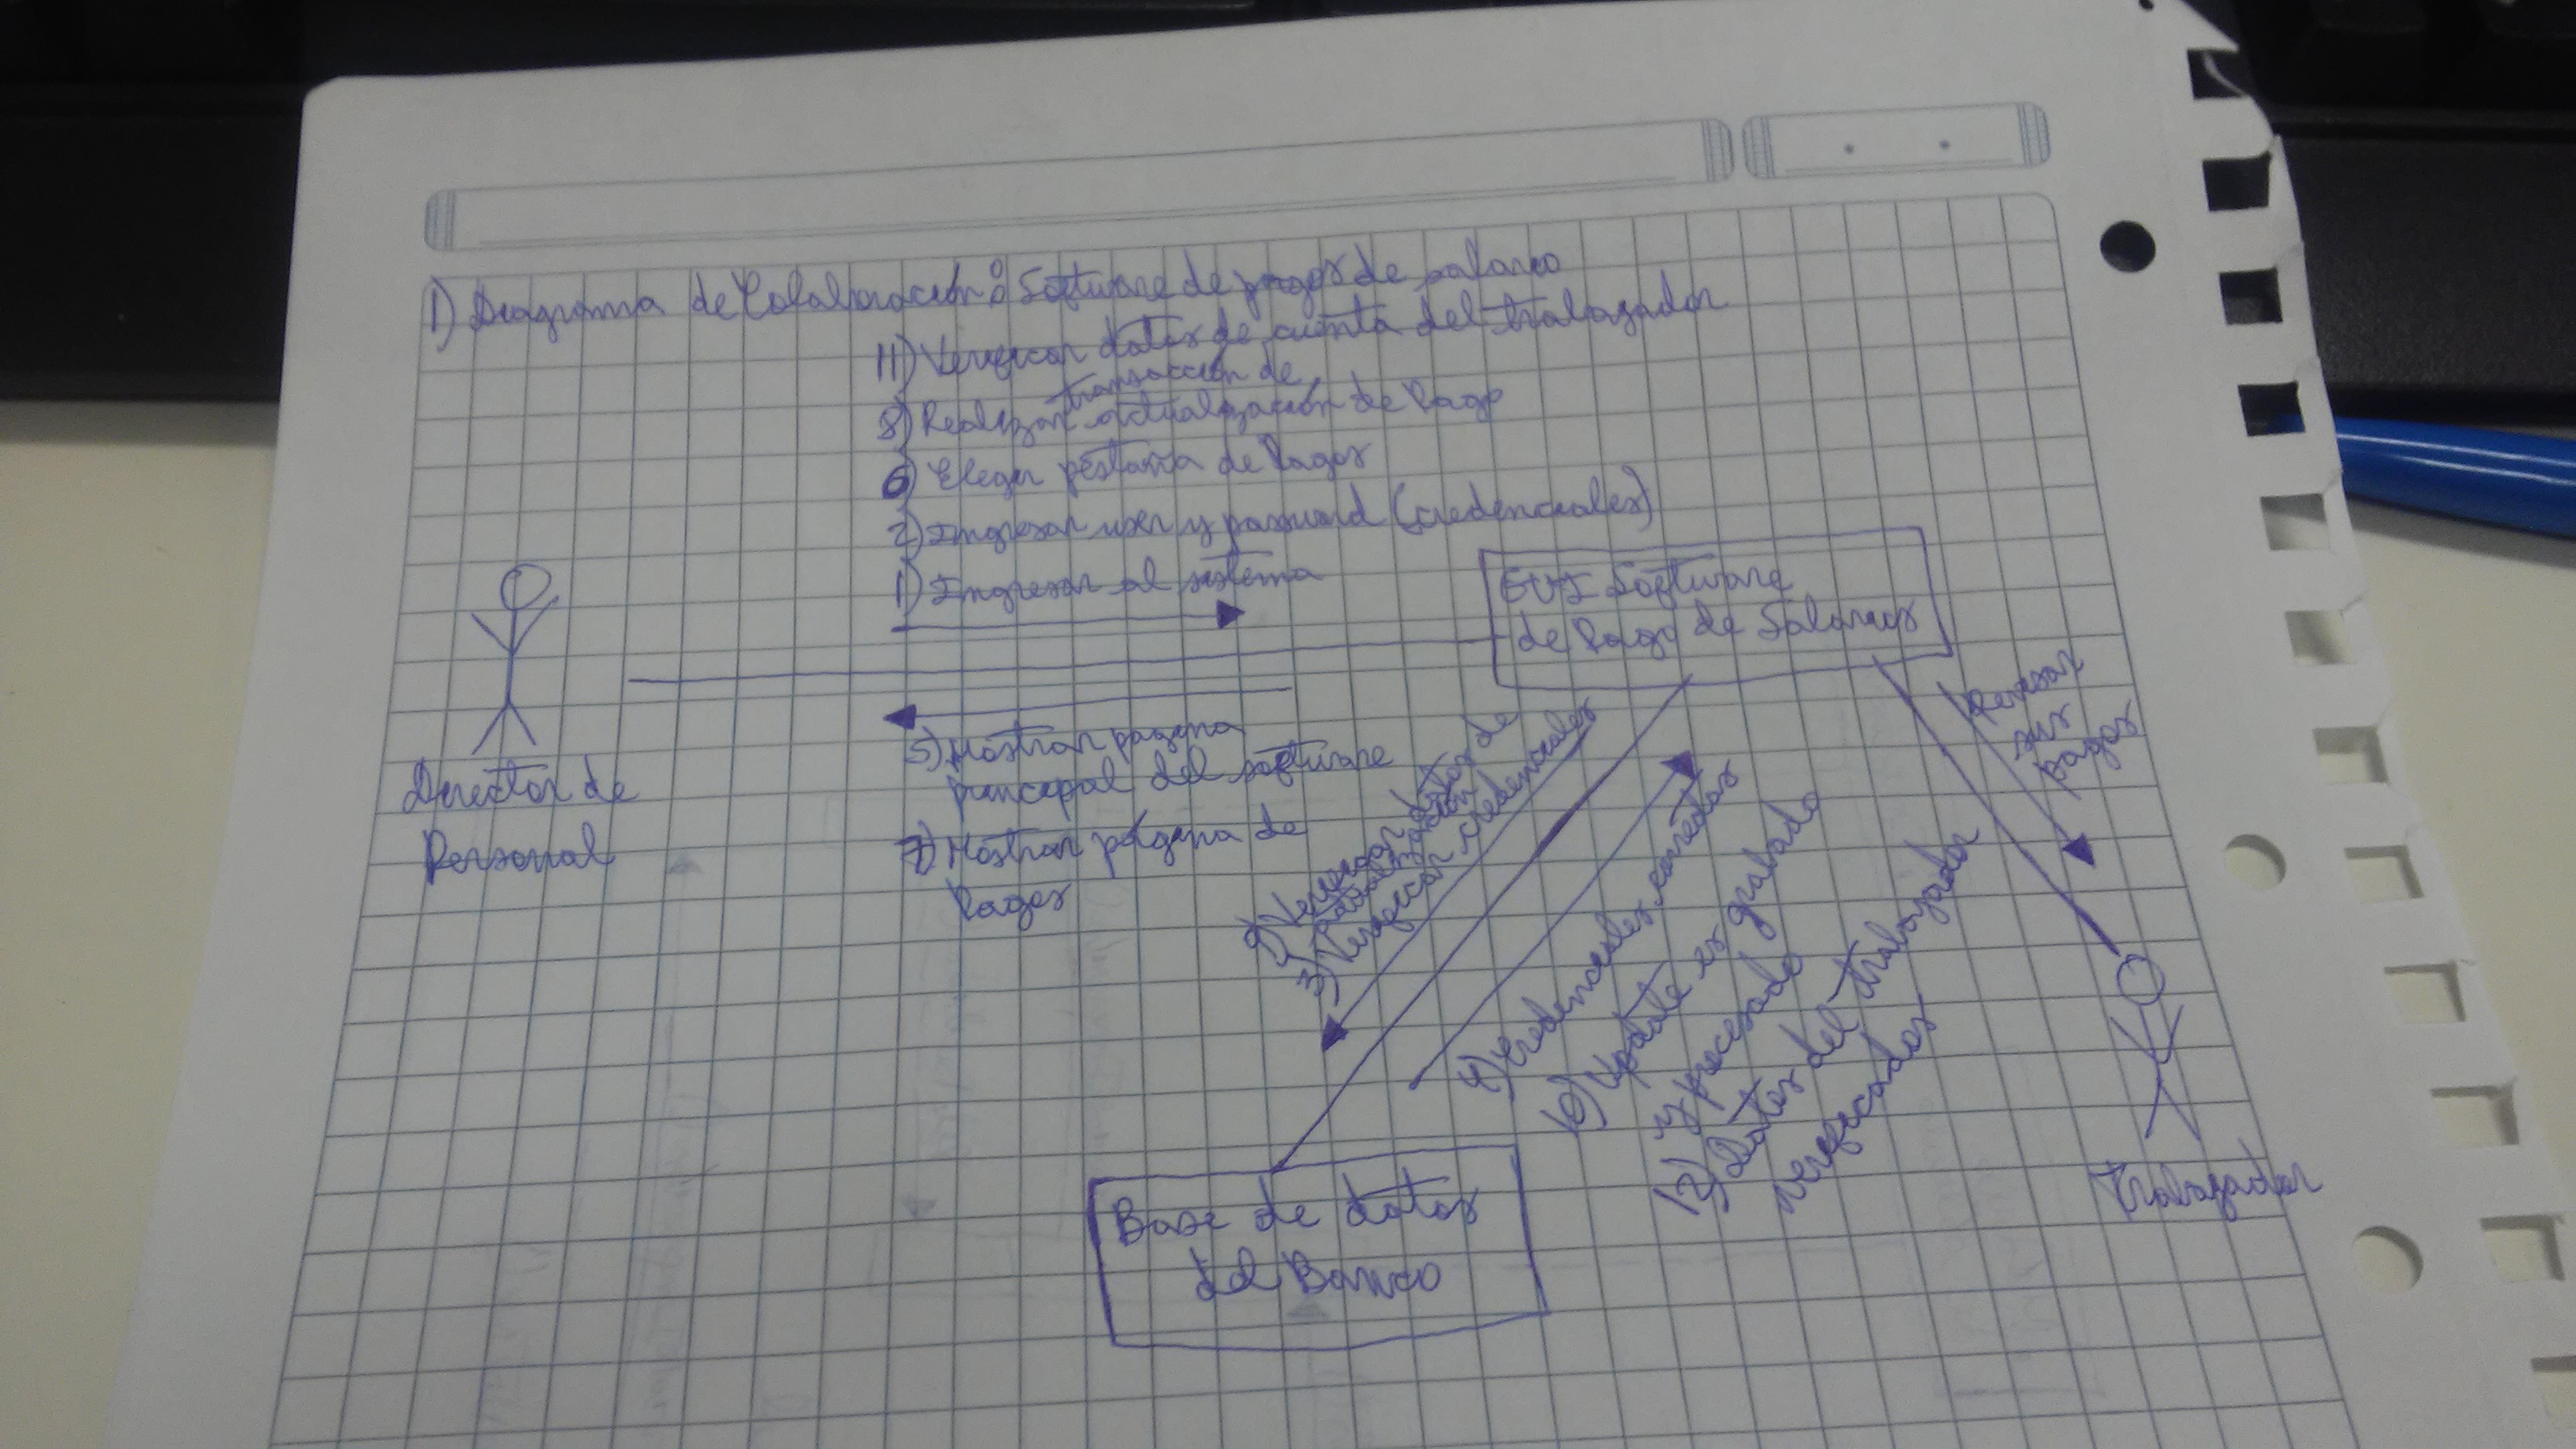 1) Diagrama de Colaboración: Software de pagos de salario
11) Verificar datos de cuenta del trabajador
transacción de
8) Realizar actualización de Pago
6) Elegir pestaña de Pagos
2) Ingresar user y password (credenciales)
1) Ingresar al sistema
GUI Software
de Pago de Salarios
Director de
Personal
5) Mostrar pagina
principal del software
7) Mostrar página de
Pagos
9) Verificar datos de
actualización
3) Verificar credenciales
4) Credenciales correctas
10) Update es grabado
y procesado
12) Datos del trabajador
verificados
Revisar
sus
pagos
Trabajador
Base de datos
del Banco